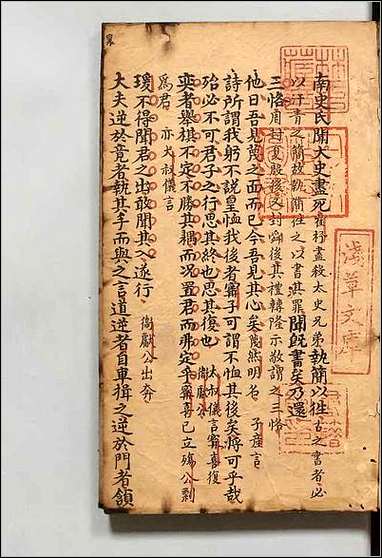 淺草文庫
南史氏聞大史盡死崔杼盡殺太史兄弟執簡以往古之書者必
以汗青之簡故執簡往之以書其罪聞旣書矣乃還
三恪周封夏殷後又封舜後其禮轉降示敬謂之三恪
他日吾見蔑之面而已今吾見其心矣蔑然明名 子產言
詩所謂我躬不說皇恤我後者甯子可謂不恤其後矣將可乎哉
殆必不可君子之行思其終也思其復也太叔儀言甯喜復衛獻公
奕者舉棋不定不勝其耦而况置君而弗定乎甯喜已立殤公剽
爲君 亦大叔儀言
瑗不得聞君之出敢聞其入遂行 衛獻公出奔
大夫逆於竟者執其手而與之言道逆者自車揖之逆於門者頷